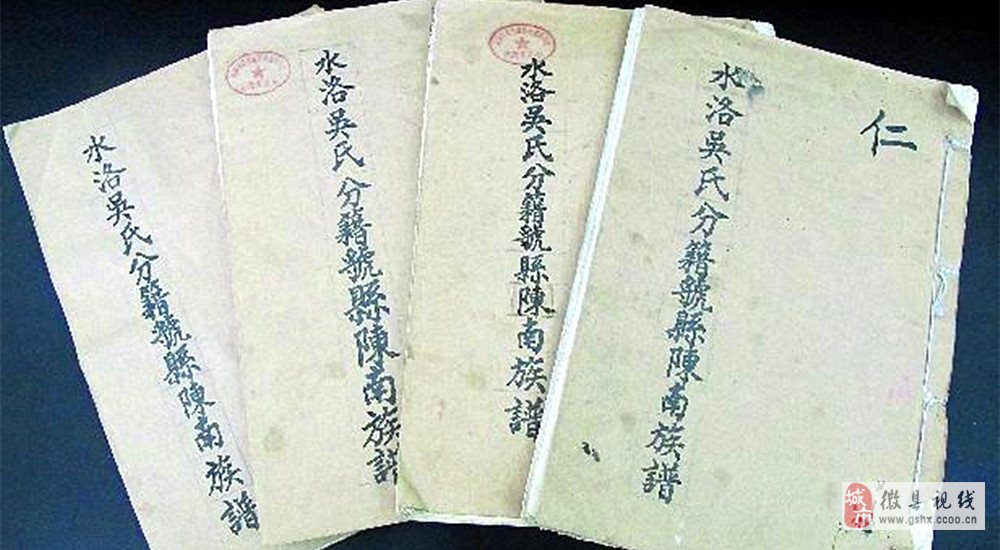 水洛吳氏分籍號縣陳南族譜
水洛吳氏分籍號縣陳南族譜
水洛吳氏分籍號縣陳南族譜
仁
水洛吳氏分籍號縣陳南族譜
城市
徽县视线
www.gshx.ccoo.cn